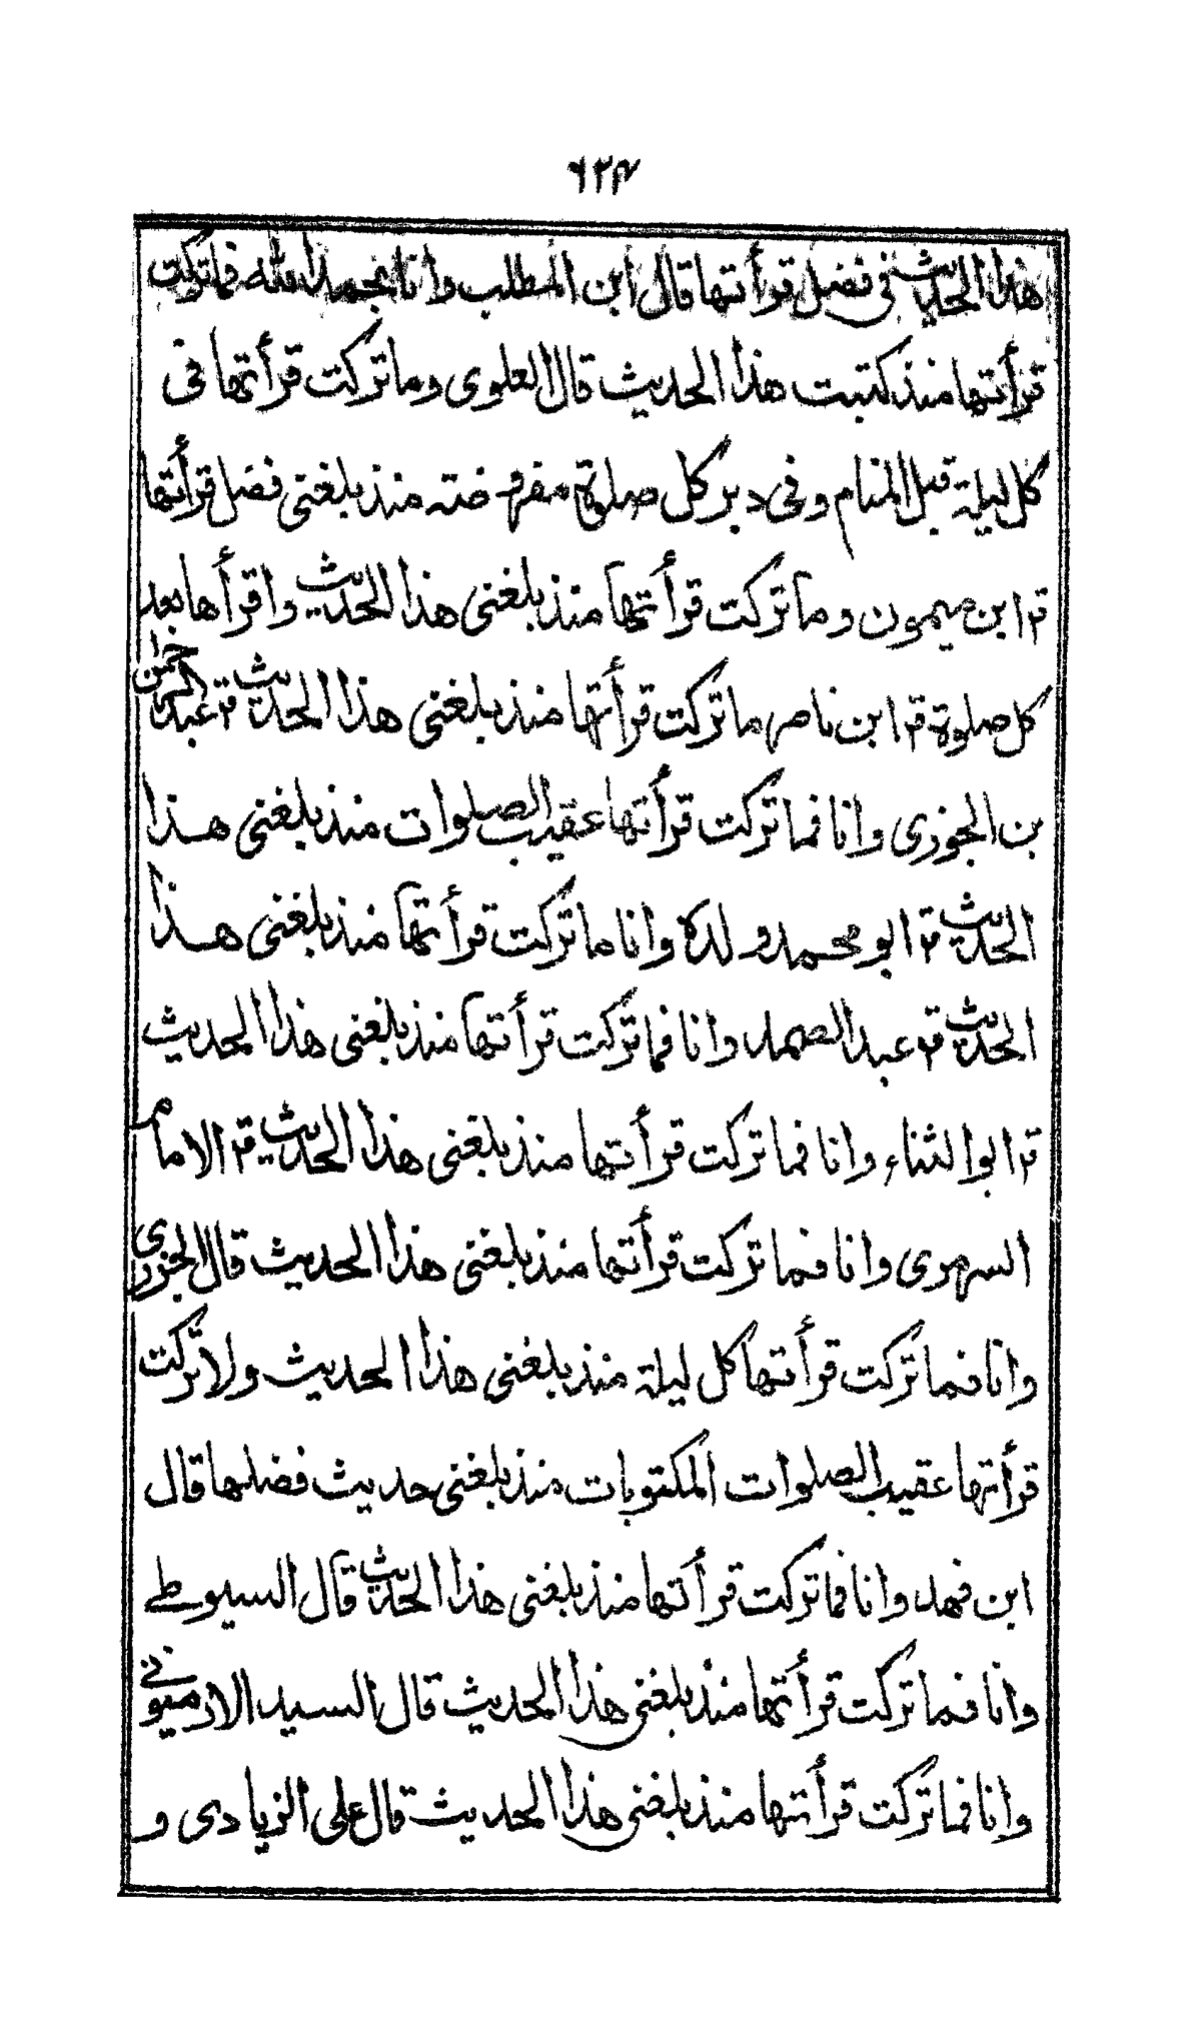 ٦٢٣
هذا الحديث في فضل قرأتها قال ابن المطلب وانا بحمد الله فما تركت
قرأتها منذ كتبت هذا الحديث قال العلوى وما تركت قرأتها فى
كل ليلة قبل المنام وفى دبر كل صلوة مفروضته منذ بلغنى فضل قرأتها
قر ابن ميمون وما تركت قرأتها منذ بلغنى هذا الحديث واقرأها بعد
كل صلوة قر ابن ناصر ما تركت قرأتها منذ بلغنى هذا الحديث قر عبد الرحمن
بن الجوزى وانا فما تركت قرأتها عقيب الصلوات منذ بلغنى هذا
الحديث قر ابو محمد ولده وانا ما تركت قرأتها منذ بلغنى هذا
الحديث قر عبد الصمد وانا فما تركت قرأتها منذ بلغنى هذا الحديث
قر ابو الثناء وانا فما تركت قرأتها منذ بلغنى هذا الحديث قر الامام
السرمرى وانا فما تركت قرأتها منذ بلغنى هذا الحديث قال الجزرى
وانا فما تركت قرأتها كل ليلة منذ بلغنى هذا الحديث ولا تركت
قرأتها عقيب الصلوات المكتوبات منذ بلغنى حديث فضلها قال
ابن فهد وانا فما تركت قرأتها منذ بلغنى هذا الحديث قال السيوطے
وانا فما تركت قرأتها منذ بلغنى هذا الحديث قال السيد الارميونے
وانا فما تركت قرأتها منذ بلغنى هذا الحديث قال على الزيادى و